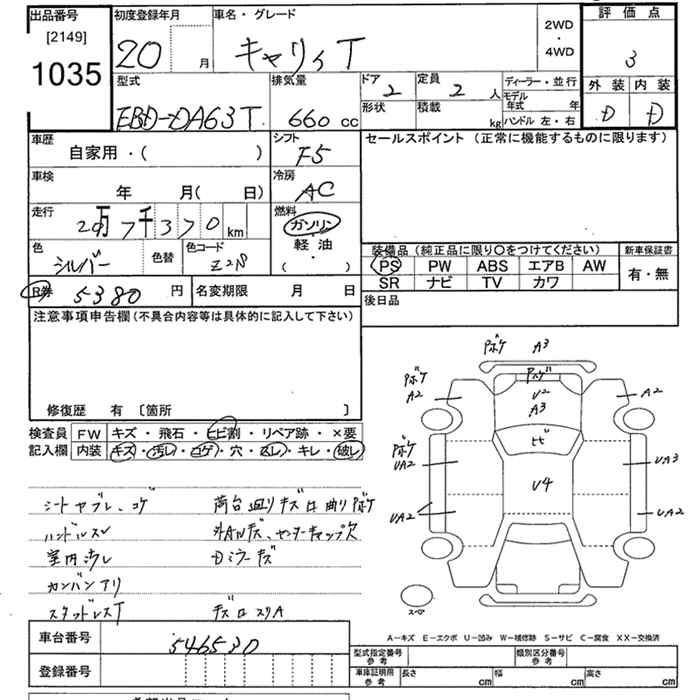 出品番号 初度登録年月 車名・グレード 2WD ・ 4WD 評価点
[2149]
1035 20 月 キャリィT 3
型式 排気量 ドア 2 定員 2 人 ディーラー・並行 外装 内装
EBD-DA63T 660 cc 形状 積載 kg モデル年式 年 D D
ハンドル 左・右
車歴 シフト セールスポイント (正常に機能するものに限ります)
自家用・( ) F5
車検 冷房
年 月( 日) AC
走行 燃料
20万7千370 km ガソリン
色 色替 色コード 軽油 装備品(純正品に限り〇をつけてください) 新車保証書
シルバー Z2S ・ ( ) PS PW ABS エアB AW 有・無
SR ナビ TV カワ
R券 5380 円 名変期限 月 日 後日品
注意事項申告欄(不具合内容等は具体的に記入して下さい)
修復歴 有 [箇所 ]
検査員 FW キズ・飛石・ヒビ割・リペア跡・×要
記入欄 内装 キズ・汚レ・コゲ・穴・スレ・キレ・破レ
Pボケ A3
Pボケ Pボケ
A2 U2 A2
A3
Pボケ ヒビ
UA2 UA3
U4
UA2 UA2
スペア
シートヤブレ、コゲ 荷台廻りキズ凹曲りPボケ
ハンドルスレ 外ANキズ、センターキャップ欠
室内汚レ Dミラーキズ
カンバンアリ
スタッドレスT キズ凹スリA
車台番号 546530
A-キズ E-エクボ U-凹み W-補修跡 S-サビ C-腐食 XX-交換済
登録番号
型式指定番号 参考 類別区分番号 参考
車庫証明用 参考 長さ cm 幅 cm 高さ cm